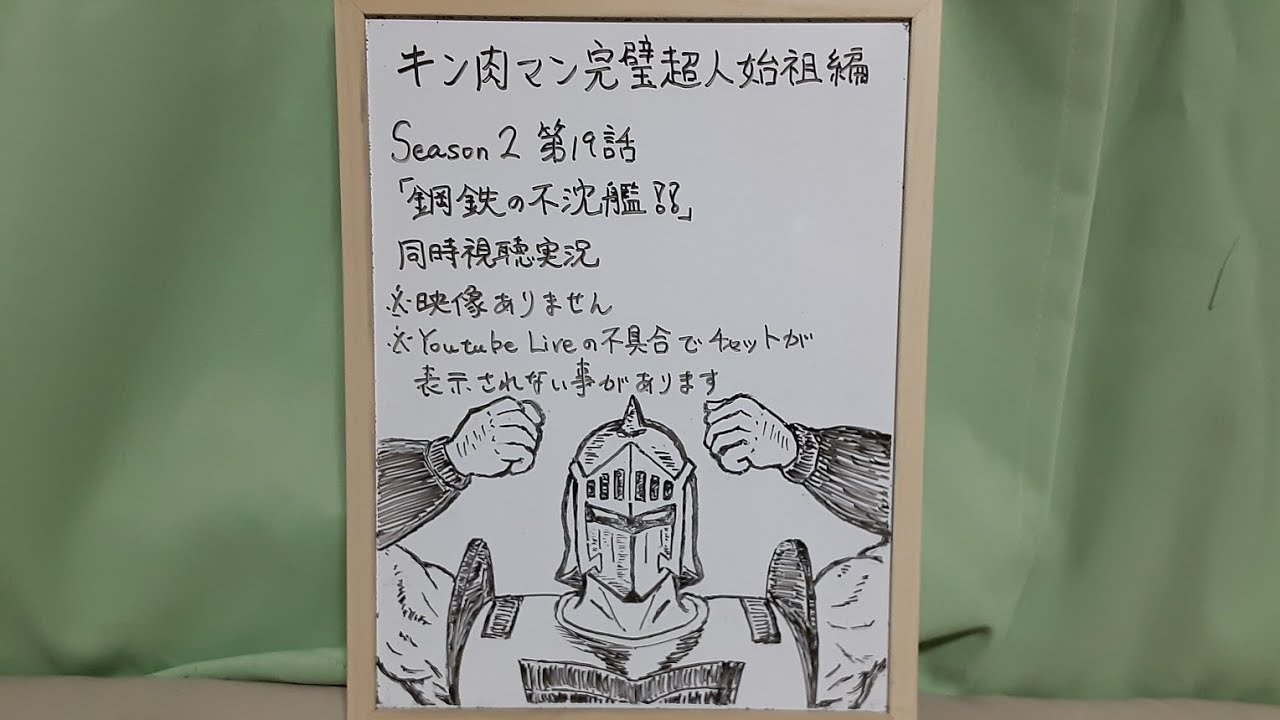 キン肉マン完璧超人始祖編
Season 2 第19話
「鋼鉄の不沈艦!!」
同時視聴実況
※映像ありません
※Youtube Liveの不具合でチャットが
表示されない事があります